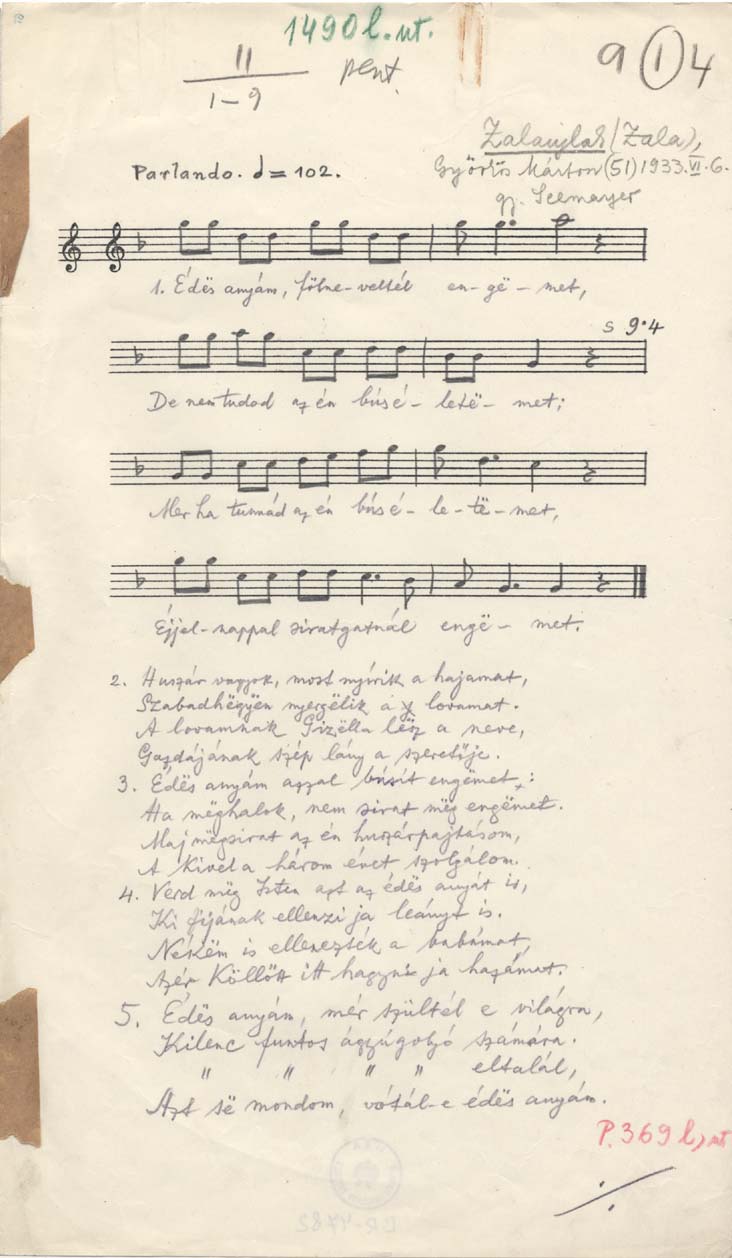 1490 l. ut.
II
1–9
pent.
9 1 4
Zalaujlak (Zala),
Györkös Márton (51) 1933. VI. 6.
gy. Seemayer
Parlando. = 102.
1. Édës anyám, fölne-veltél en-gë-met,
s 9·4
De nem tudod az én búsé-letë-met;
Mer ha tunnád az én búsé-le-të-met,
Éjjel-nappal siratgatnál engë-met.
2. Huszár vagyok, most nyírik a hajamat,
Szabadhëgyën nyergëlik a lovamat.
A lovamnak Gizëlla lësz a neve,
Gazdájának szép lány a szeretője.
3. Édës anyám azzal búsít engëmet:
Ha mëghalok, nem sirat mëg engëmet.
Maj mëgsirat az én huszárpajtásom,
A kivel a három évet szolgálom.
4. Verd mëg Isten azt az édës anyát is,
Ki fijának ellenzi ja leányt is.
Nékëm is ellenezték a babámat,
Azér köllött itt hagyni ja hazámat.
5. Édës anyám, mér szültél e világra,
Kilenc funtos ágyúgolyó számára.
" " " " eltalál,
Azt së mondom, vótál-e édës anyám.
P. 369 l, ut